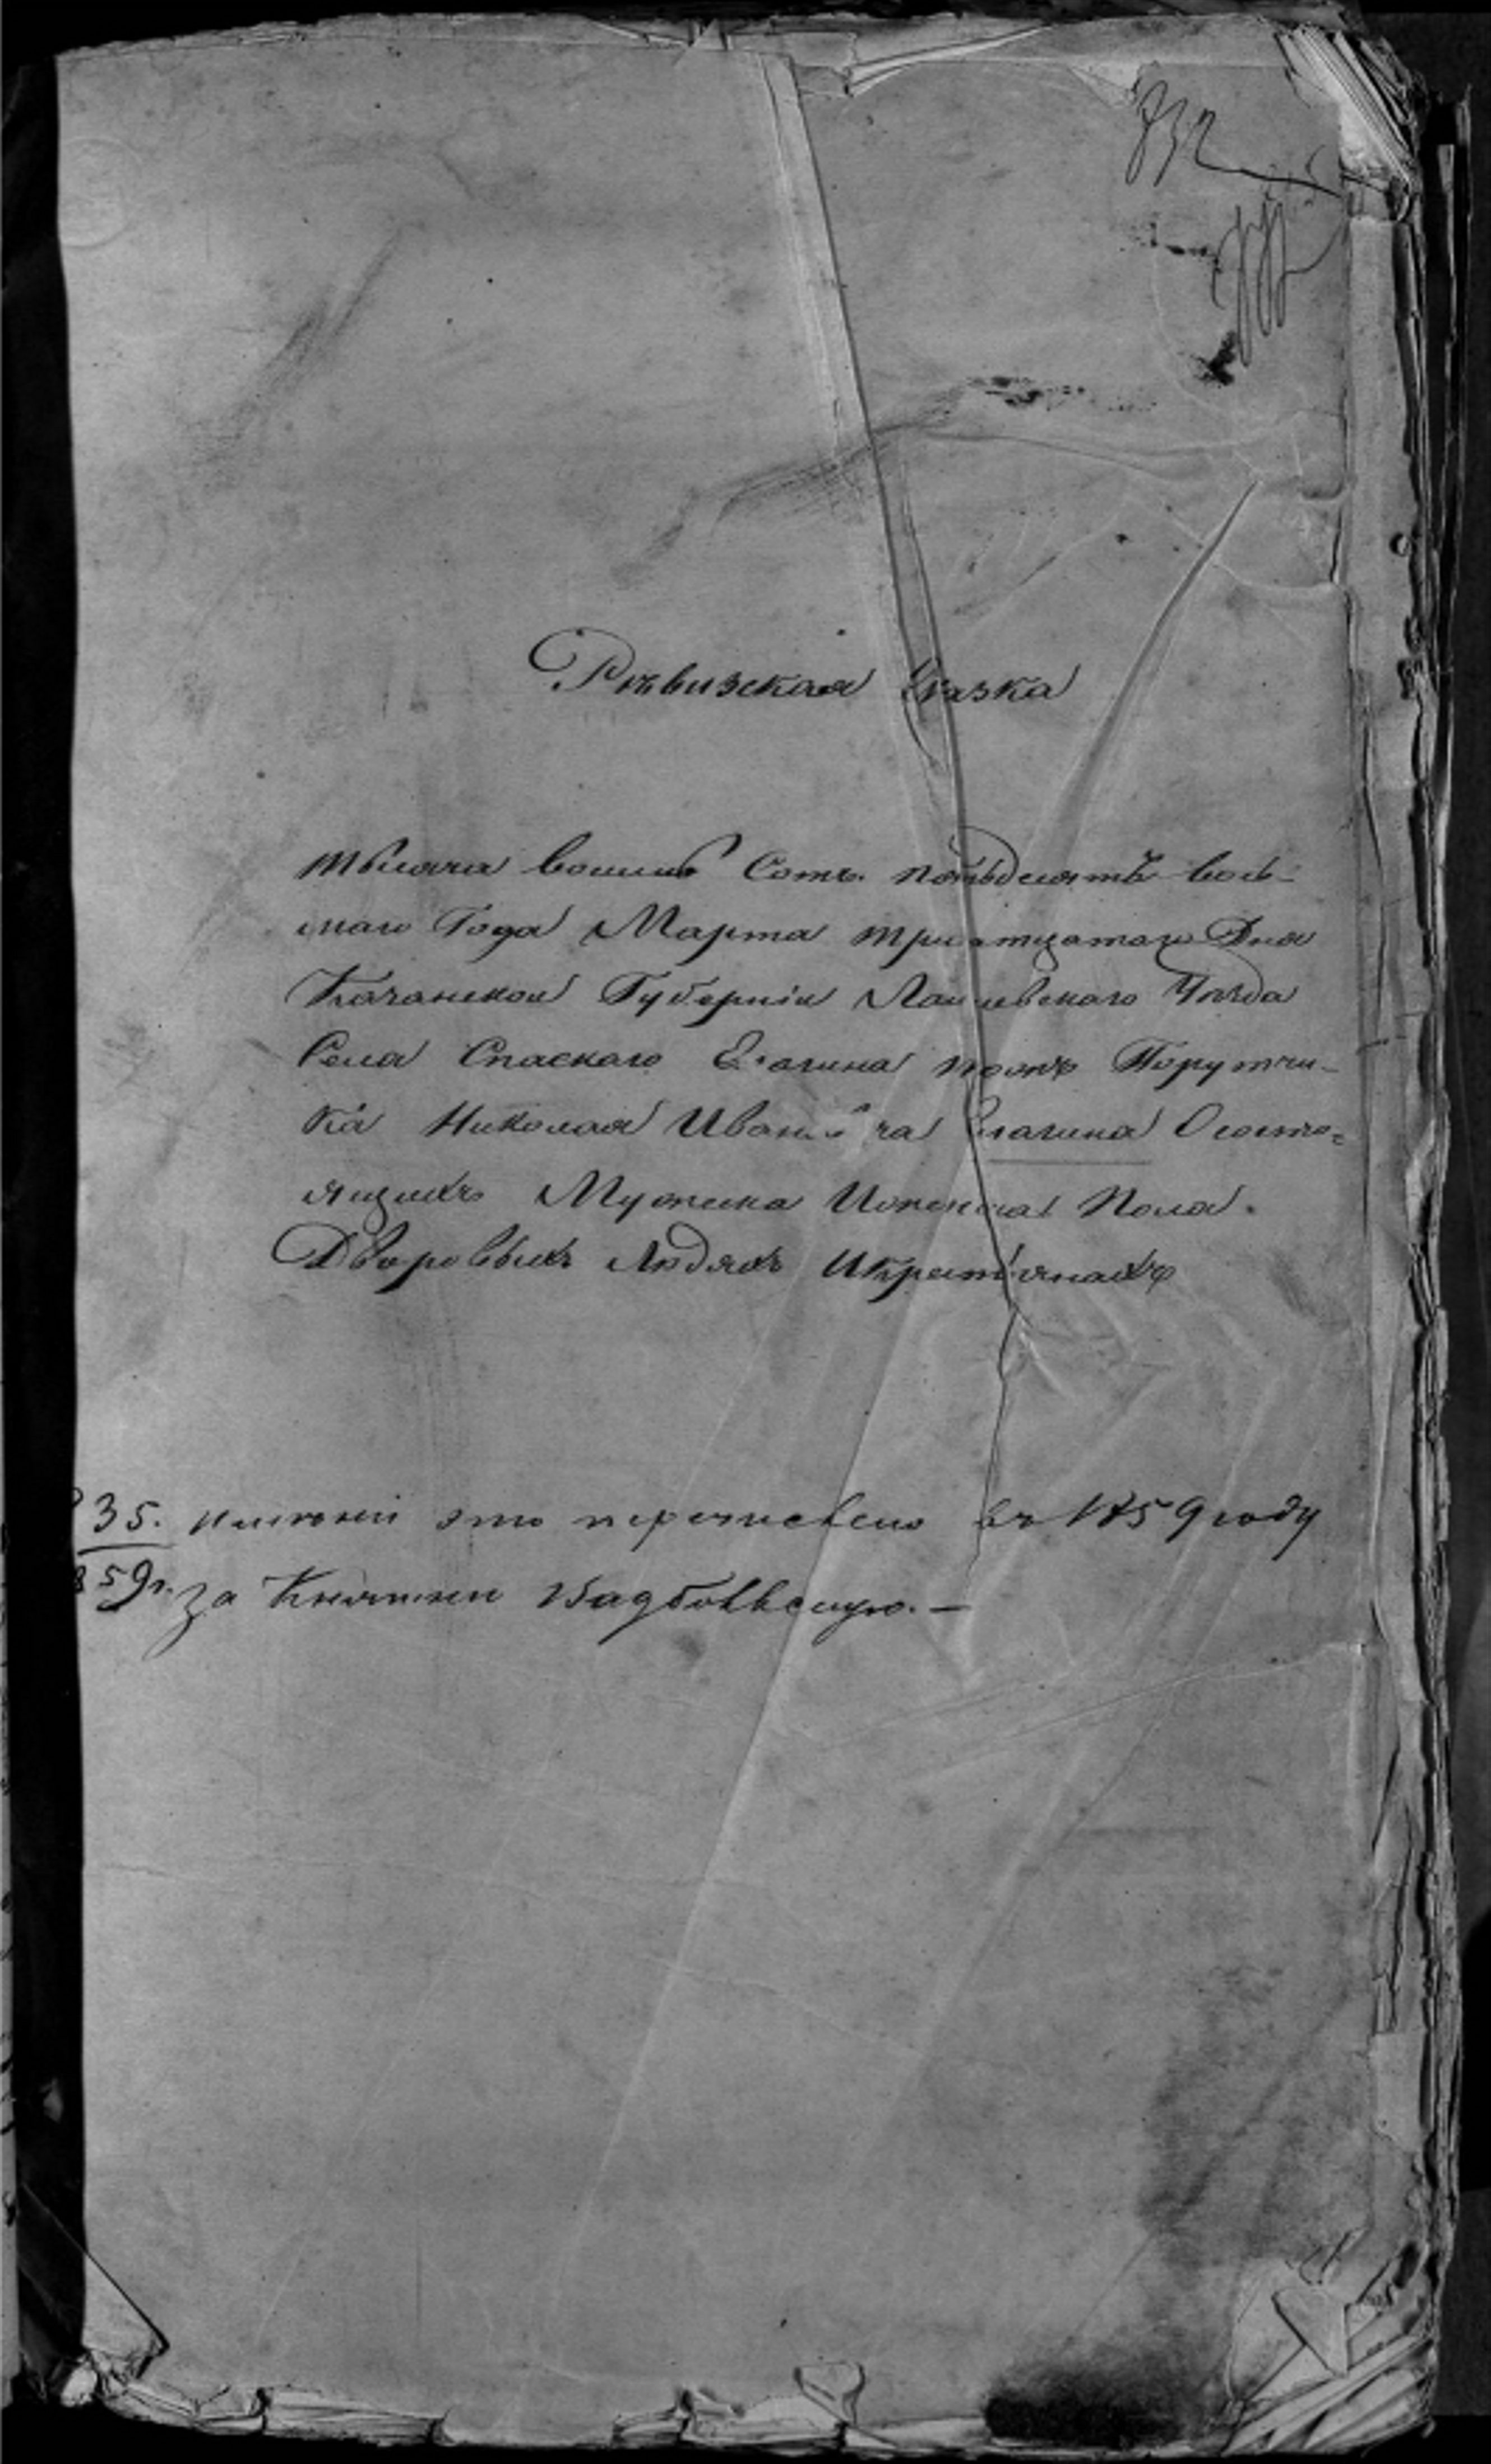 732
Ревизская Сказка
тысяча восемь Сотъ пятьдесятъ вось-
маго Года Марта тридцатаго Дня
Казанской Губерніи Лаишевскаго Уѣзда
Села Спаскаго Елагина тожъ Поручи-
ка Николая Ивановича Елагина Ососто-
ящихъ Мужеска Иженска Пола.
Дворовыхъ Людяхъ Икрестьянахъ
35. имѣніе это перечислено въ 1859 году
859г. за Княгиню Вадбольскую. —